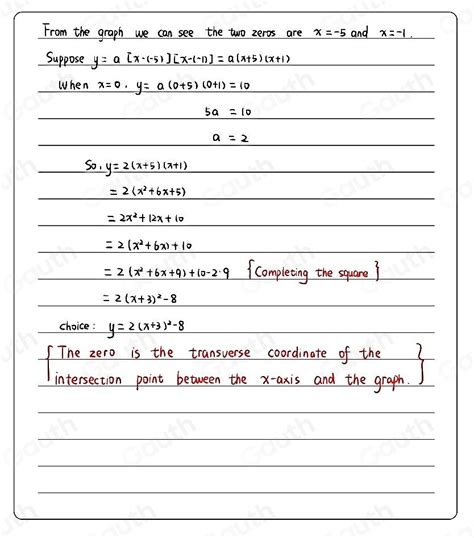 From the graph we can see the two zeros are x=-5 and x=-1.
Suppose y = a [x-(-5)][x-(-1)] = a(x+5)(x+1)
When x=0, y= a(0+5)(0+1)=10
5a = 10
a = 2
So, y= 2(x+5)(x+1)
= 2(x²+6x+5)
= 2x²+12x+10
= 2(x²+6x)+10
= 2(x²+6x+9)+10-2·9 {Completing the square}
= 2(x+3)²-8
choice: y=2(x+3)²-8
{The zero is the transverse coordinate of the
intersection point between the x-axis and the graph.}
Gauth